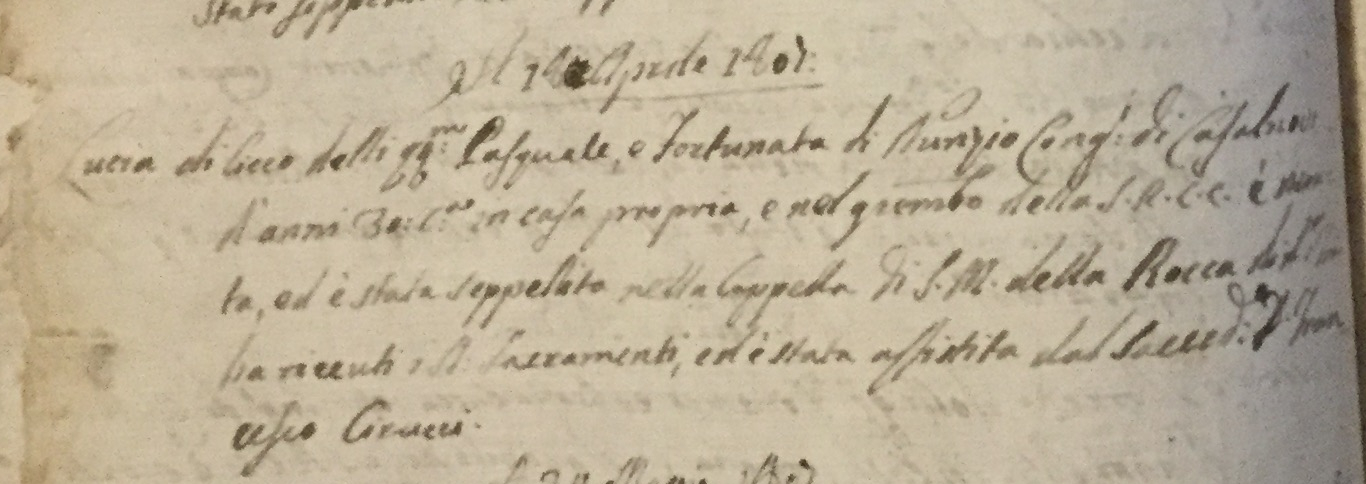 stata seppe
Il 18 Aprile 1807.
Lucia di Cicco delli qq.m Pasquale, e Fortunata di Nunzio Cong.i di Casalnovo
d'anni 30: C.ca in casa propria, e nel grembo della S. R. C. C. è mor
ta, ed è stata seppelita nella Cappella di S. M. della Rocca
ha ricevuti i SS. Sacramenti, ed è stata assistita dal Sacerd.e D. Fran
cesco Cirucci.
Maggio 1807